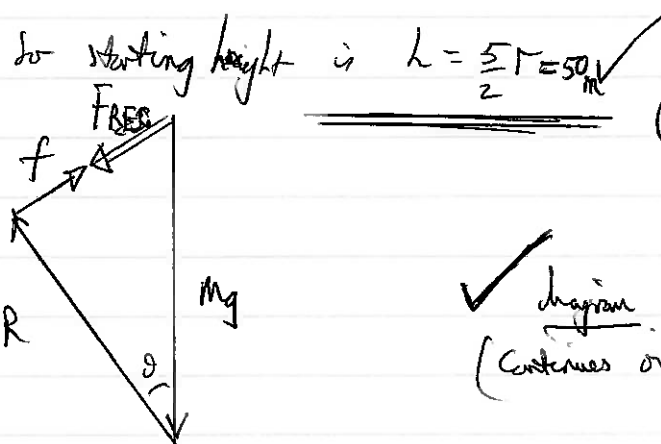 So starting height is h = 5/2 r = 50m ✓
(
F
f
Mg
R
θ
✓ diagram
(Continues on